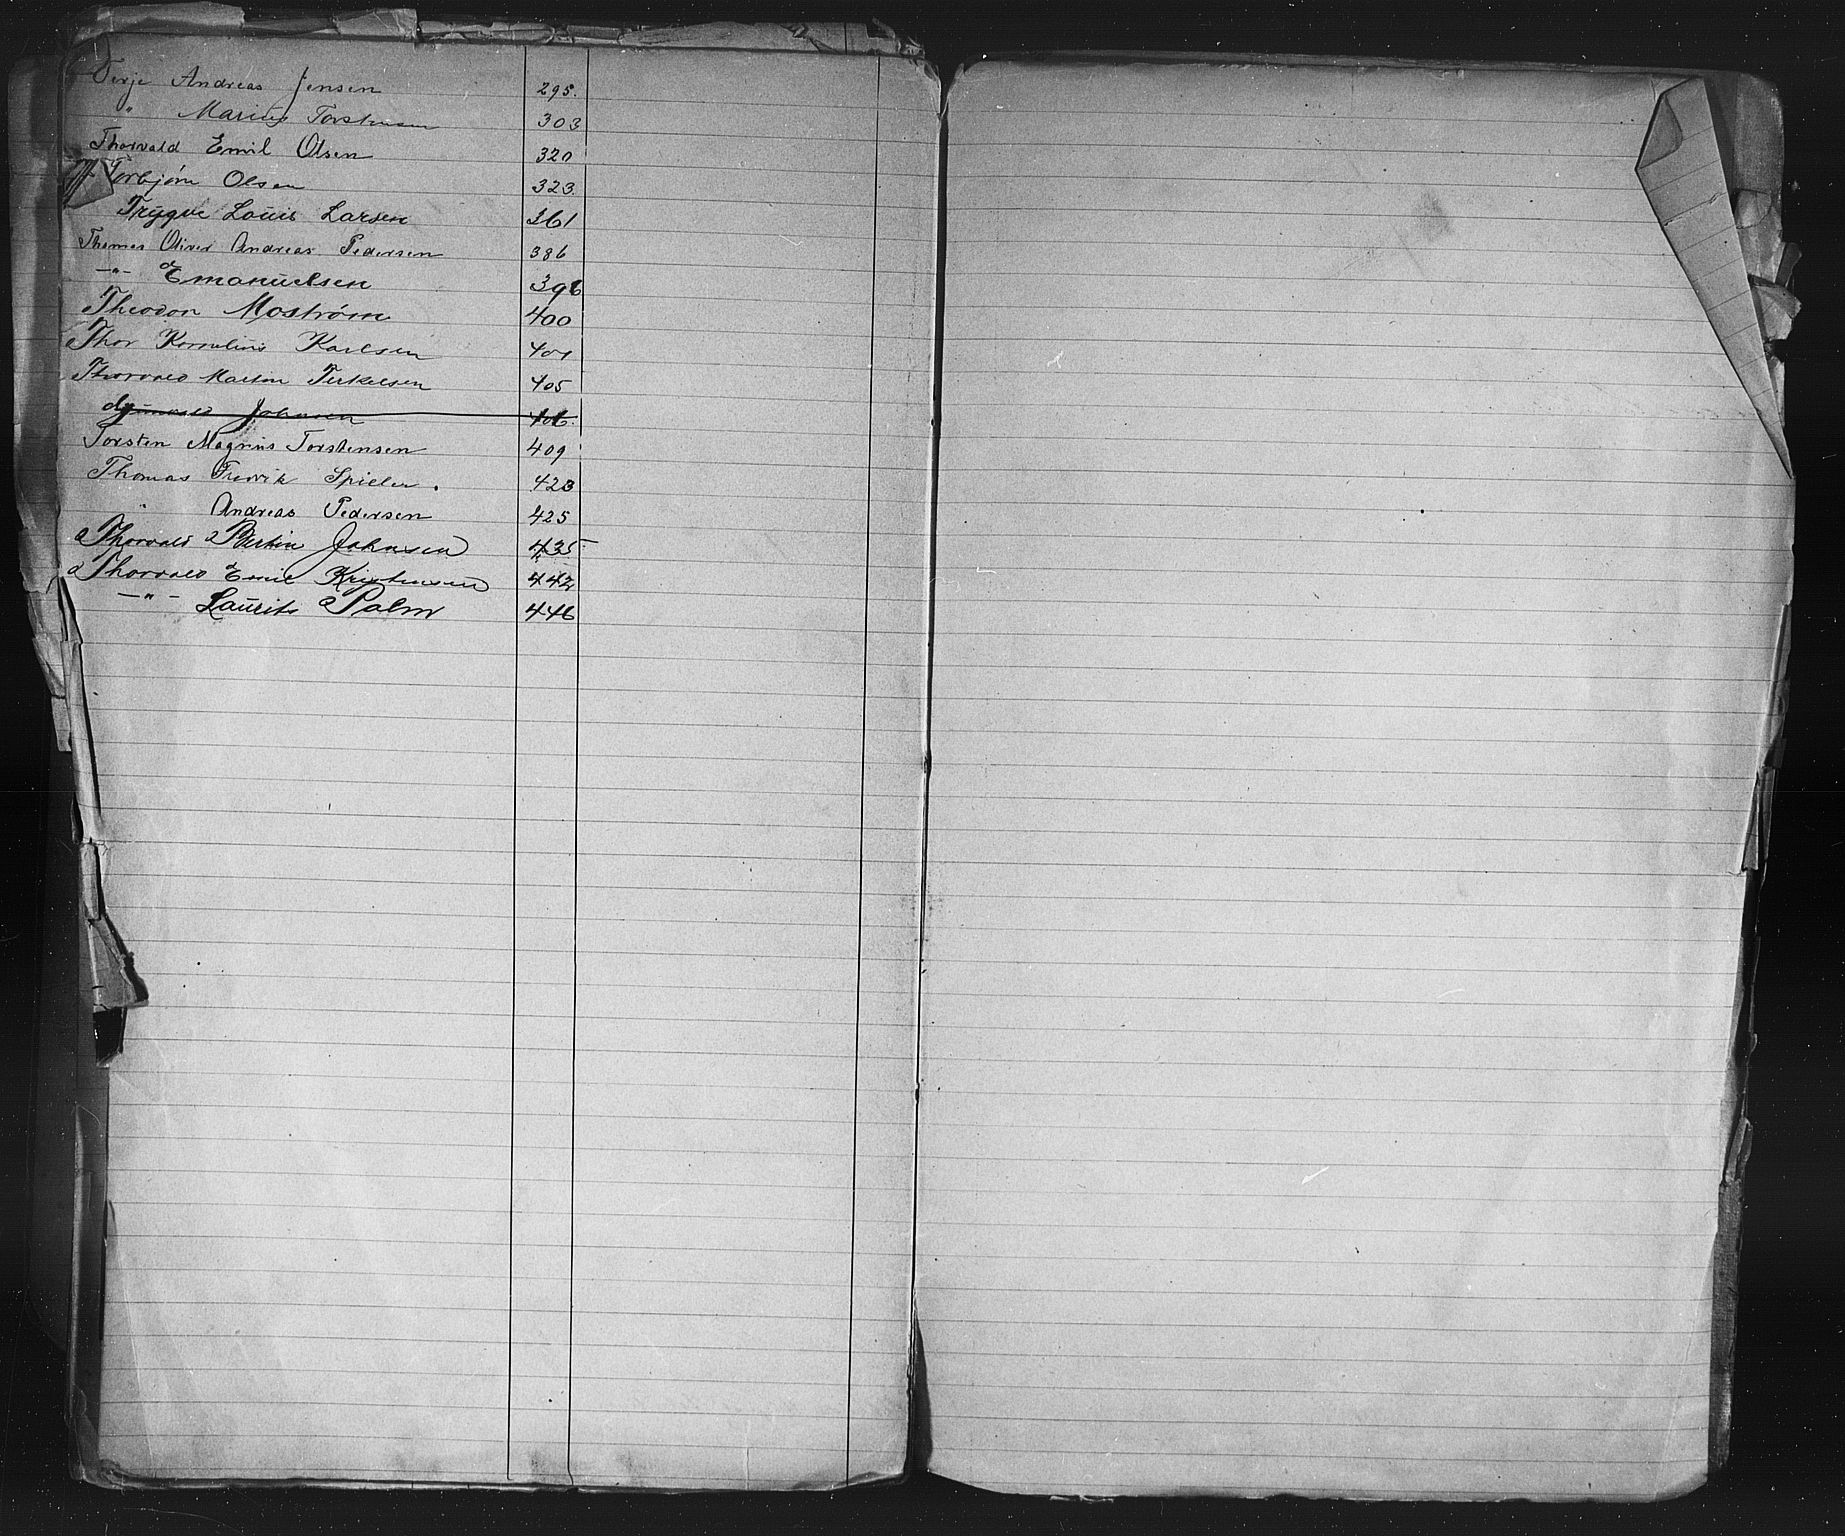 Terje Andreas Jensen 295.
" Marius Torstensen 303
Thorvald Emil Olsen 320
Torbjørn Olsen 323.
Trygve Louis Larsen 361
Thomas Oliver Andreas Pedersen 386
-"- Emanuelsen 396
Theodor Moström 400
Thor Kornelius Karlsen 401
Thorvald Martin Terkelsen 405
Johnsen 406.
Torsten Magnus Torstensen 409
Thomas Fredrik Spieler. 423
" Andreas Pedersen 425
Thorvald Bertin Johnsen 435
Thorvald Emil Kristensen 442
-"- Laurits Palm 446